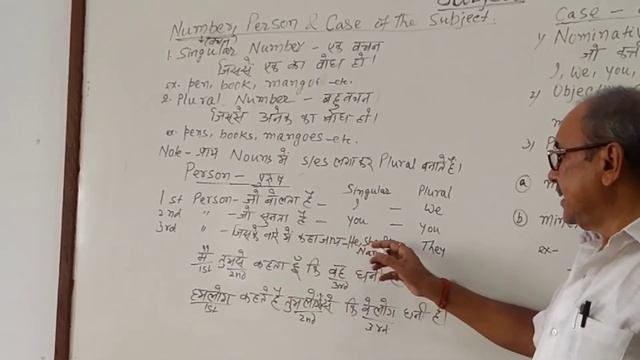 Subject
Number, Person & Case of The Subject.
वचन
1. Singular Number - एक वचन
जिससे एक का बोध हो।
ex. pen, book, mango -etc.
2. Plural Number - बहुवचन
जिससे अनेक का बोध हो।
ex. pens, books, mangoes - etc.
Note - प्रायः Nouns में s/es लगाकर Plural बनाते हैं।
Person - पुरुष
Singular Plural
1st Person - जो बोलता है - I - We
2nd " - जो सुनता है - You - You
3rd " - जिसके बारे में कहा जाय - He, She They
मैं तुमसे कहता हूँ कि वह धनी
1st 2nd 3rd
हमलोग कहते हैं तुमलोगों से कि वे लोग धनी हैं।
1st 2nd 3rd
Case -
1) Nominative
जो
I, we, you,
2)
3)
a
b
ex -